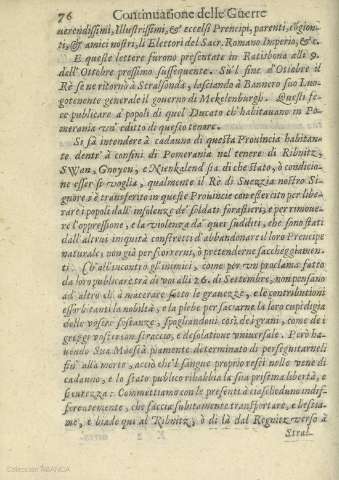 76 Continuatione delle Guerre
uerendissimi, Illustrissimi, & eccelsi Prencipi, parenti, cugion-
ti, & amici nostri, li Elettori del Sacr. Romano Imperio, & c.
E queste lettere furono presentate in Ratisbona alli 9.
dell'Ottobre prossimo susseguente. Su'l fine d'Ottobre il
Rè se ne ritornò à Stralsonda, lasciando à Bannero suo Luo-
gotenente generale il governo di Mekelenburgh. Questi fe-
ce publicare a' popoli di quel Ducato ch'habitauano in Po-
merania un'editto di questo tenore.
Si fà intendere à cadauno di questa Prouincia habitan-
te dentr' à confini di Pomerania nel tenere di Ribnitz,
SWan, Gnoyen, Nienkalend sia di che stato, ò conditio-
ne esser si voglia, qualmente il Rè di Suezzia nostro Si-
gnore s'è transferito in queste Prouincie con essercito per libe-
rare i popoli dall'insolenze de' soldati forastieri, e per rimoue-
re l'oppressione, e la violenza da' quei sudditi, che sono stati
dall'altrui iniquità constretti d'abbandonare il loro Prencipe
naturale, non già per sforzerui, ò pretenderne saccheggiamen-
ti. Ch'all'incontro gli inimici, come per un proclama fatto
da loro publicare trà di voi alli 26. di Settembre, non pensano
ad altro ch' à macerare sotto le grauezze, e le contributioni
essorbitanti la nobiltà, e la plebe per saciarne la loro cupidigia
delle vostre sostanze, spogliandoui così de i grani, come de i
greggi vostri con straccio, e desolatione uniuersale. Però ha-
uendo Sua Maestà piamente determinato di perseguitarneli
fin' alla morte, acciò che'l sangue proprio resti nelle vene di
cadauno, e lo stato publico rihabbia la sua pristina libertà, e
sicurezza: Commettiamo con le presenti à ciascheduno indif-
ferentemente, che faccia subitamente transportare, e bestia-
me, e biade qui al Ribnitz, ò di là dal Regnitz verso à
Stral-
Colección ABANCA